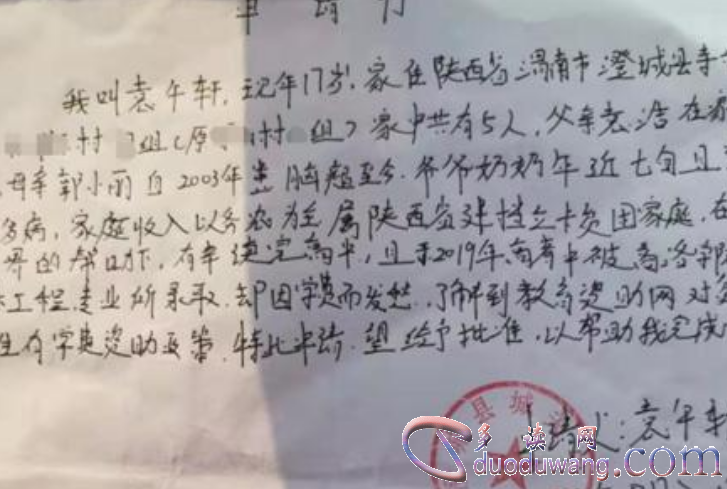 申请书
我叫袁午轩,现年17岁,家住陕西省渭南市澄城县寺
村 组(原 村 组)家中共有5人,父亲袁浩在家
母亲郭小丽自2003年 脑瘫至今.爷爷奶奶年近七旬且
多病,家庭收入以务农为主属陕西省建档立卡贫困家庭.在
界的帮助下,有幸读完高中,且于2019年高考中被 洛
工程专业所录取.却因学费而发愁.了解到教育资助网对
生有学费资助政策.特此申请.望给予批准,以帮助我完成
县城
申请人:袁午轩
多读网
duoduwang.com